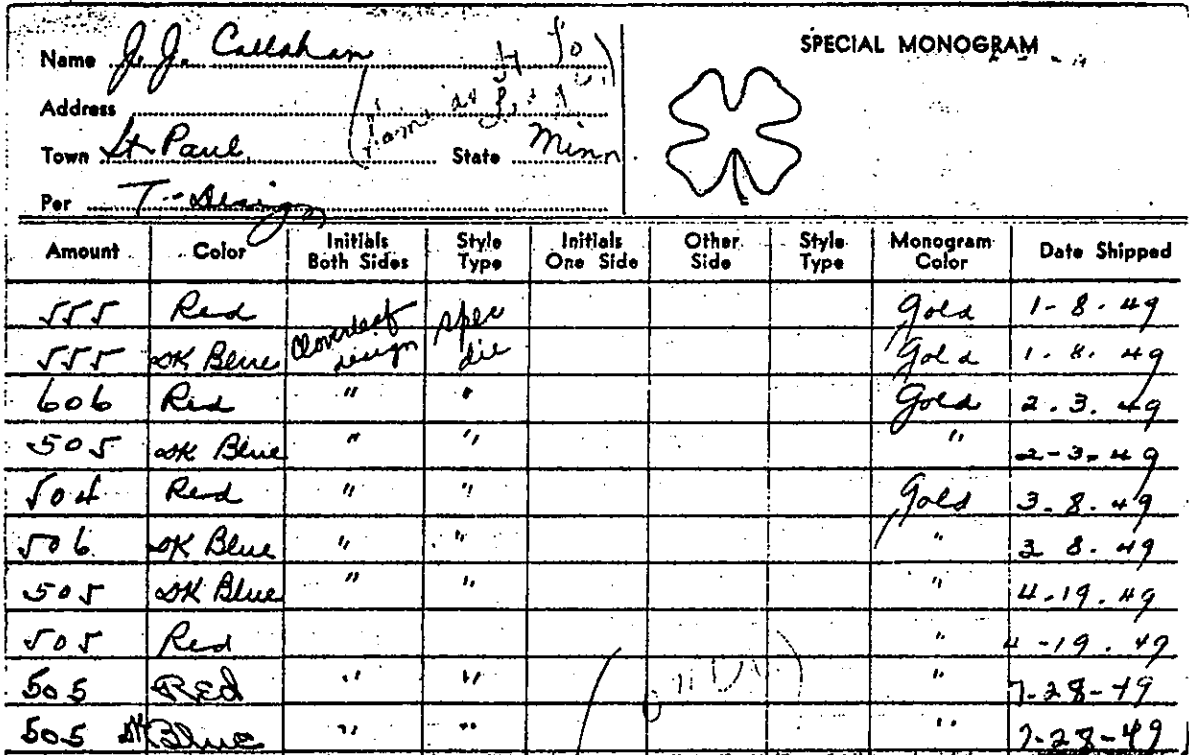 Name J. J. Callahan
SPECIAL MONOGRAM
Address
Town St Paul State Minn.
Per T-Design
Amount Color Initials Both Sides Style Type Initials One Side Other Side Style Type Monogram Color Date Shipped
555 Red Cloverleaf design spec die Gold 1-8-49
555 DK Blue Gold 1.8.49
606 Red " " Gold 2.3.49
505 DK Blue " " " 2-3-49
504 Red " " Gold 3.8.49
506 DK Blue " " " 3 8.49
505 DK Blue " " " 4-19.49
505 Red " 4-19.49
505 Red " " " 7-28-49
505 DK Blue " " " 7-28-49